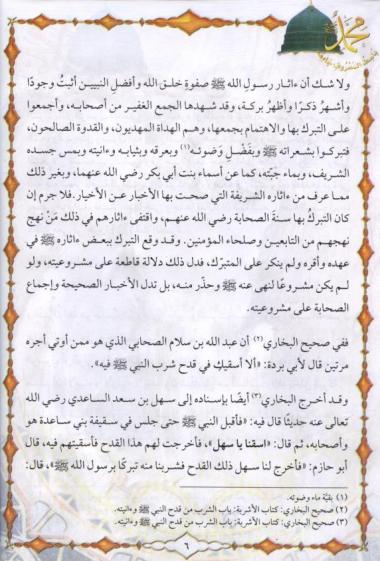 محمد
ولا شك أن ءاثار رسول الله ﷺ صفوة خلق الله وأفضل النبيين أثبتُ وجودًا
وأشهرُ ذكرًا وأظهرُ بركة، وقد شهدها الجمع الغفير من أصحابه، وأجمعوا
على التبرك بها والاهتمام بجمعها، وهم الهداة المهديون، والقدوة الصالحون،
فتبركوا بشعراته ﷺ وبفَضْلِ وَضوئه(١) وبعرقه وبثيابه وءانيته وبمس جسده
الشريف، وبماء جبّته، كما عن أسماء بنت أبي بكر رضي الله عنهما، وبغير ذلك
مما عرف من ءاثاره الشريفة التي صحت بها الأخبار عن الأخيار. فلا جرم إن
كان التبركُ بها سنةَ الصحابة رضي الله عنهم، واقتفى ءاثارهم في ذلك مَنْ نهج
نهجهم من التابعين وصلحاء المؤمنين. وقد وقع التبرك ببعض ءاثاره ﷺ في
عهده وأقره ولم ينكر على المتبرّك، فدل ذلك دلالة قاطعة على مشروعيته، ولو
لم يكن مشروعًا لنهى عنه ﷺ وحذّر منه، بل تدل الأخبار الصحيحة وإجماع
الصحابة على مشروعيته.
ففي صحيح البخاري(٢) أن عبد الله بن سلام الصحابي الذي هو ممن أوتي أجره
مرتين قال لأبي بردة: «ألا أسقيك في قدح شرب النبي ﷺ فيه».
وقد أخرج البخاري(٣) أيضًا بإسناده إلى سهل بن سعد الساعدي رضي الله
تعالى عنه حديثًا قال فيه: «فأقبل النبي ﷺ حتى جلس في سقيفة بني ساعدة هو
وأصحابه، ثم قال: «اسقنا يا سهل»، فأخرجت لهم هذا القدح فأسقيتهم فيه، قال
أبو حازم: «فأخرج لنا سهل ذلك القدح فشربنا منه تبركًا برسول الله ﷺ»، قال:
(١) بقيّة ماء وضوئه.
(٢) صحيح البخاري: كتاب الأشربة: باب الشرب من قدح النبي ﷺ وءانيته.
(٣) صحيح البخاري: كتاب الأشربة: باب الشرب من قدح النبي ﷺ وءانيته.
٦